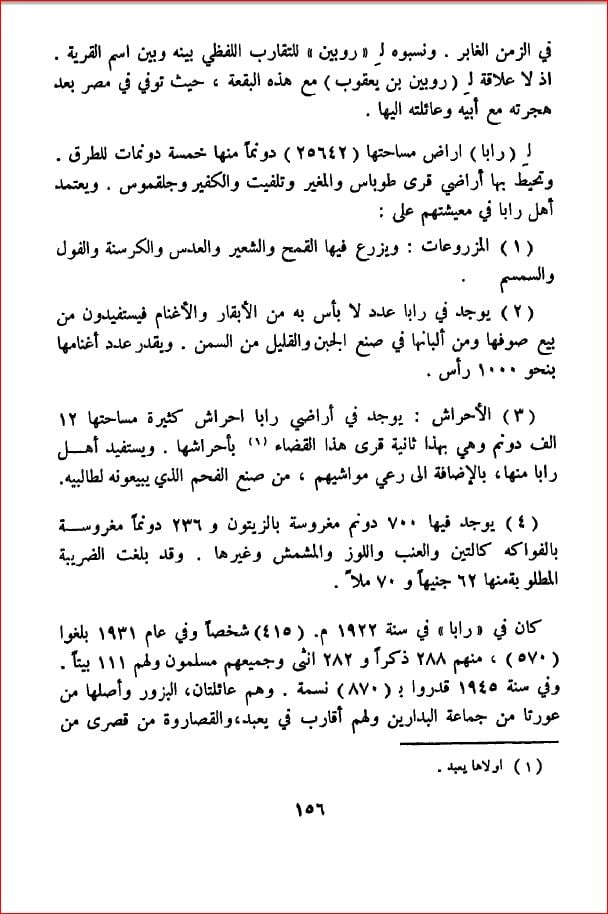 في الزمن الغابر . ونسبوه لِـ « روبين » للتقارب اللفظي بينه وبين اسم القرية .
اذ لا علاقة لِـ ( روبين بن يعقوب ) مع هذه البقعة ، حيث توفي في مصر بعد
هجرته مع أبيه وعائلته اليها .
لِـ ( رابا ) اراض مساحتها ( ٢٥٦٤٢ ) دونماً منها خمسة دونمات للطرق .
وتحيط بها أراضي قرى طوباس والمغير وتلفيت والكفير وجلقموس . ويعتمد
أهل رابا في معيشتهم على :
( ١ ) المزروعات : ويزرع فيها القمح والشعير والعدس والكرسنة والفول
والسمسم .
( ٢ ) يوجد في رابا عدد لا بأس به من الأبقار والأغنام فيستفيدون من
بيع صوفها ومن ألبانها في صنع الجبن والقليل من السمن . ويقدر عدد أغنامها
بنحو ١٠٠٠ رأس .
( ٣ ) الأحراش : يوجد في أراضي رابا احراش كثيرة مساحتها ١٢
الف دونم وهي بهذا ثانية قرى هذا القضاء (١) بأحراشها . ويستفيد أهــل
رابا منها، بالإضافة الى رعي مواشيهم ، من صنع الفحم الذي يبيعونه لطالبيه.
( ٤ ) يوجد فيها ٧٠٠ دونم مغروسة بالزيتون و ٢٣٦ دونماً مغروســة
بالفواكه كالتين والعنب واللوز والمشمش وغيرها . وقد بلغت الضريبة
المطلو بقمنها ٦٢ جنيهاً و ٧٠ ملاً .
كان في « رابا » في سنة ١٩٢٢ م. ( ٤١٥ ) شخصاً وفي عام ١٩٣١ بلغوا
( ٥٧٠ ) ، منهم ٢٨٨ ذكراً و ٢٨٢ انثى وجميعهم مسلمون ولهم ١١١ بيتاً .
وفي سنة ١٩٤٥ قدروا بـ ( ٨٧٠ ) نسمة . وهم عائلتان، البزور وأصلها من
عورتا من جماعة البدارين ولهم أقارب في يعبد،والقصاروة من قصرى من
( ١ ) اولاها يعبد .
١٥٦